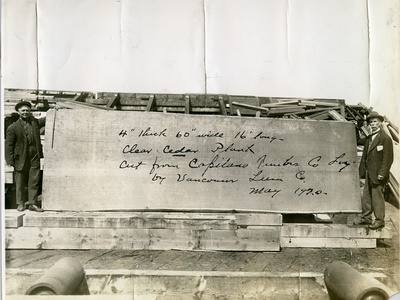 4" thick 60" wide 16' long
Clear Cedar Plank
cut from Capilano Timber Co Log
by Vancouver Co
May 1920.